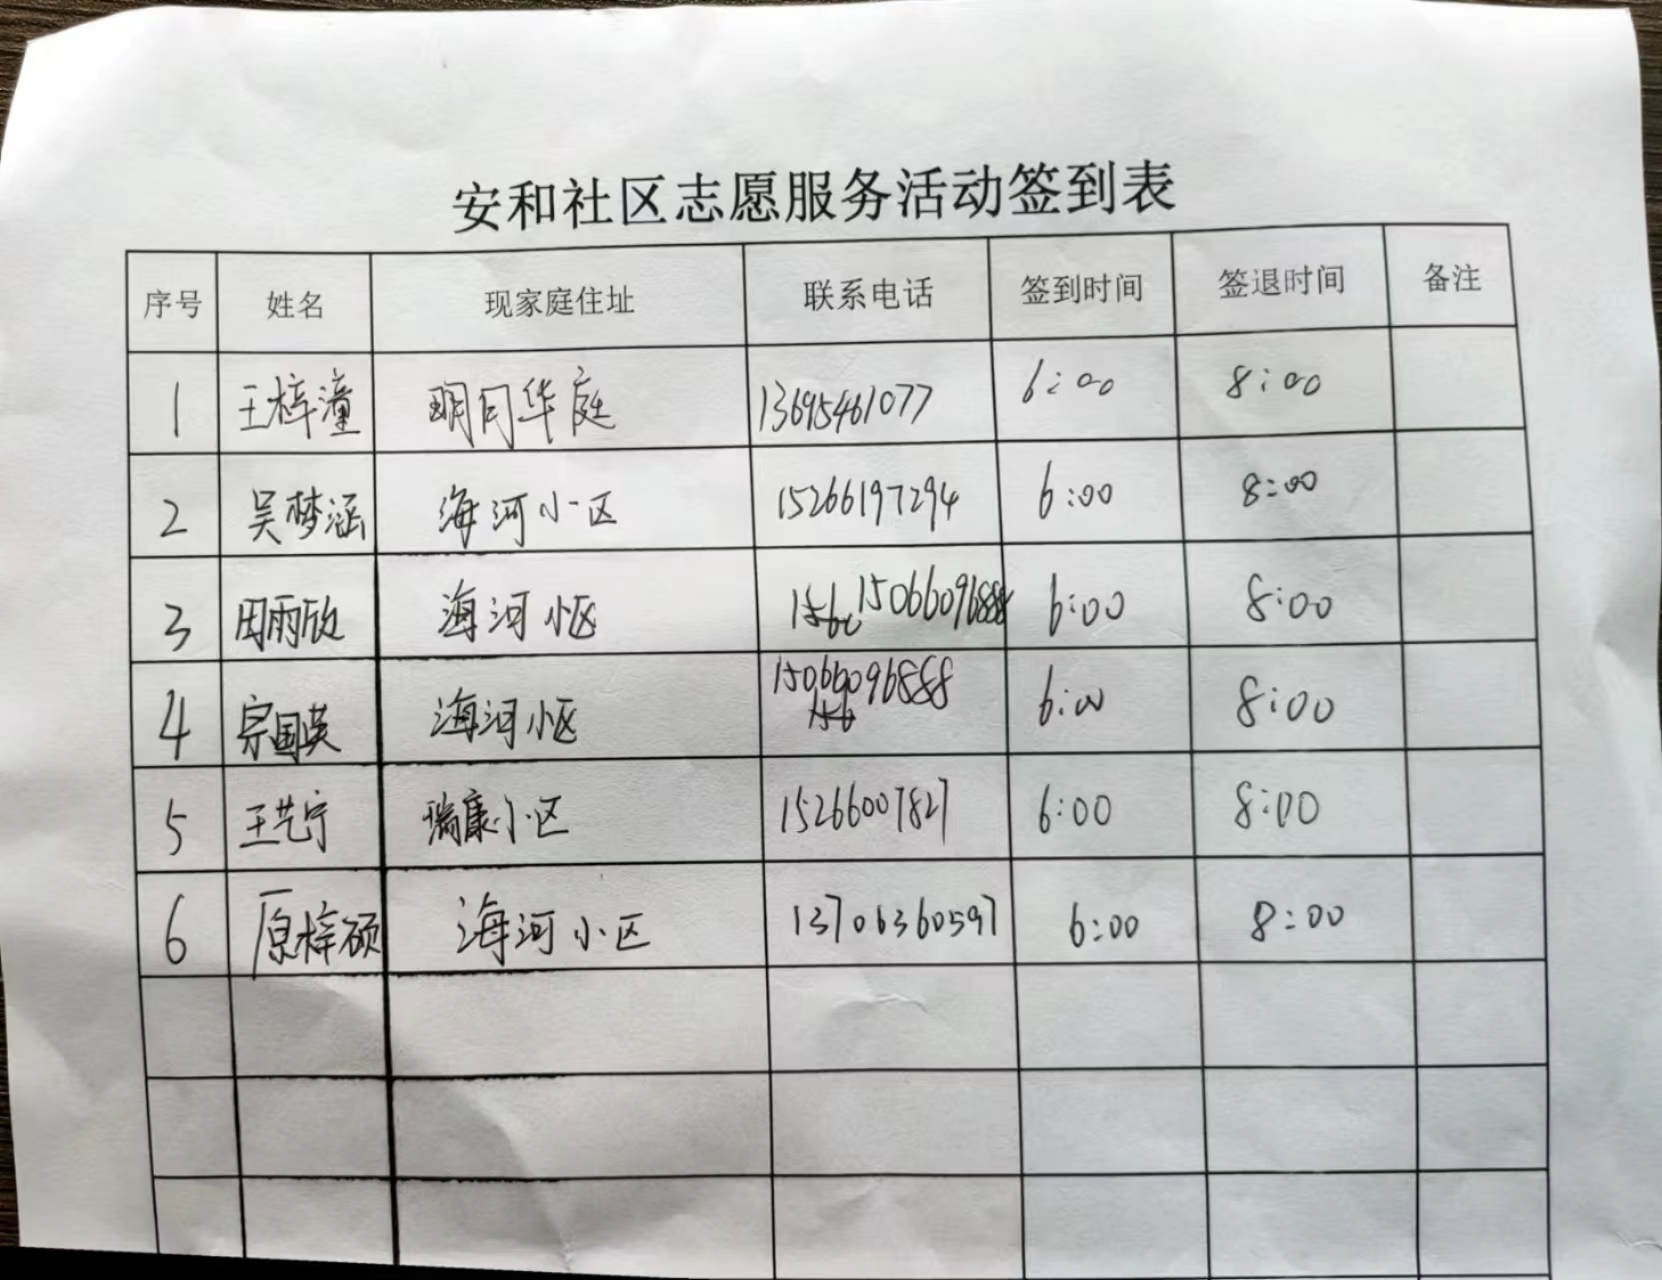 安和社区志愿服务活动签到表
序号 姓名 现家庭住址 联系电话 签到时间 签退时间 备注
1 王梓潼 明月华庭 13695461077 6:00 8:00
2 吴梦涵 海河小区 15266197294 6:00 8:00
3 田雨欣 海河小区 15066096888 6:00 8:00
4 宗国英 海河小区 15066096888 6:00 8:00
5 王艺宁 瑞康小区 15266007827 6:00 8:00
6 原梓硕 海河小区 13706360597 6:00 8:00